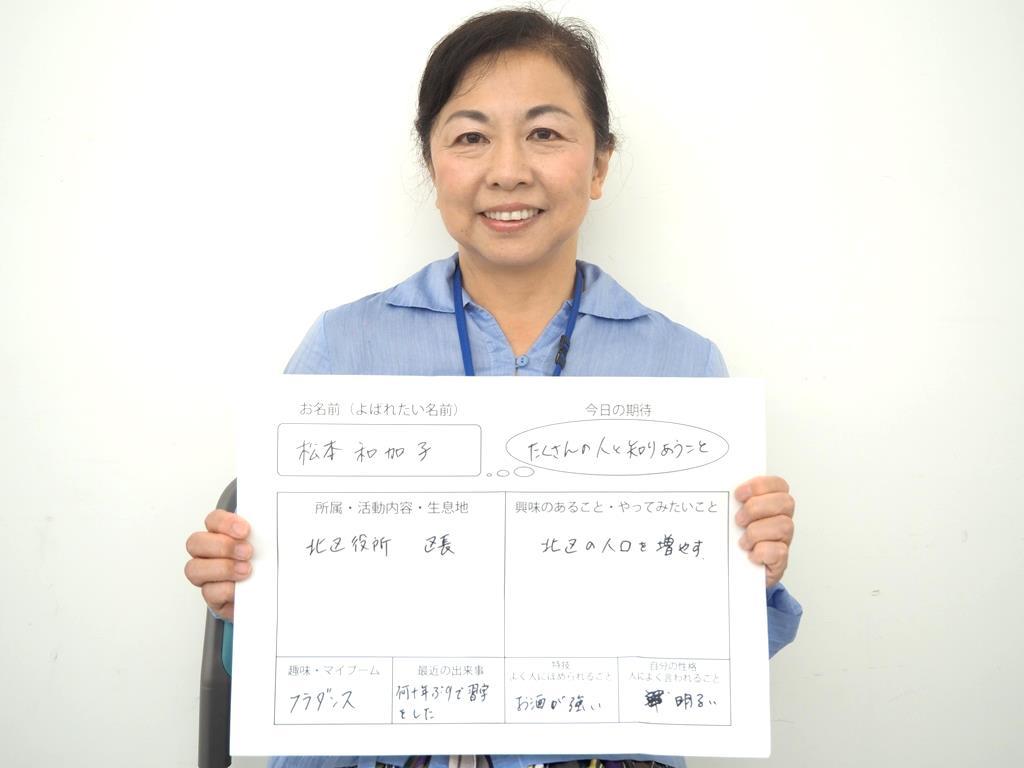 お名前（よばれたい名前）
松本 和加子
今日の期待
たくさんの人と知りあうこと
所属・活動内容・生息地
北区役所 区長
興味のあること・やってみたいこと
北区の人口を増やす
趣味・マイブーム
フラダンス
最近の出来事
何十年ぶりで習字
をした
特技
よく人にほめられること
お酒が強い
自分の性格
人によく言われること
明るい